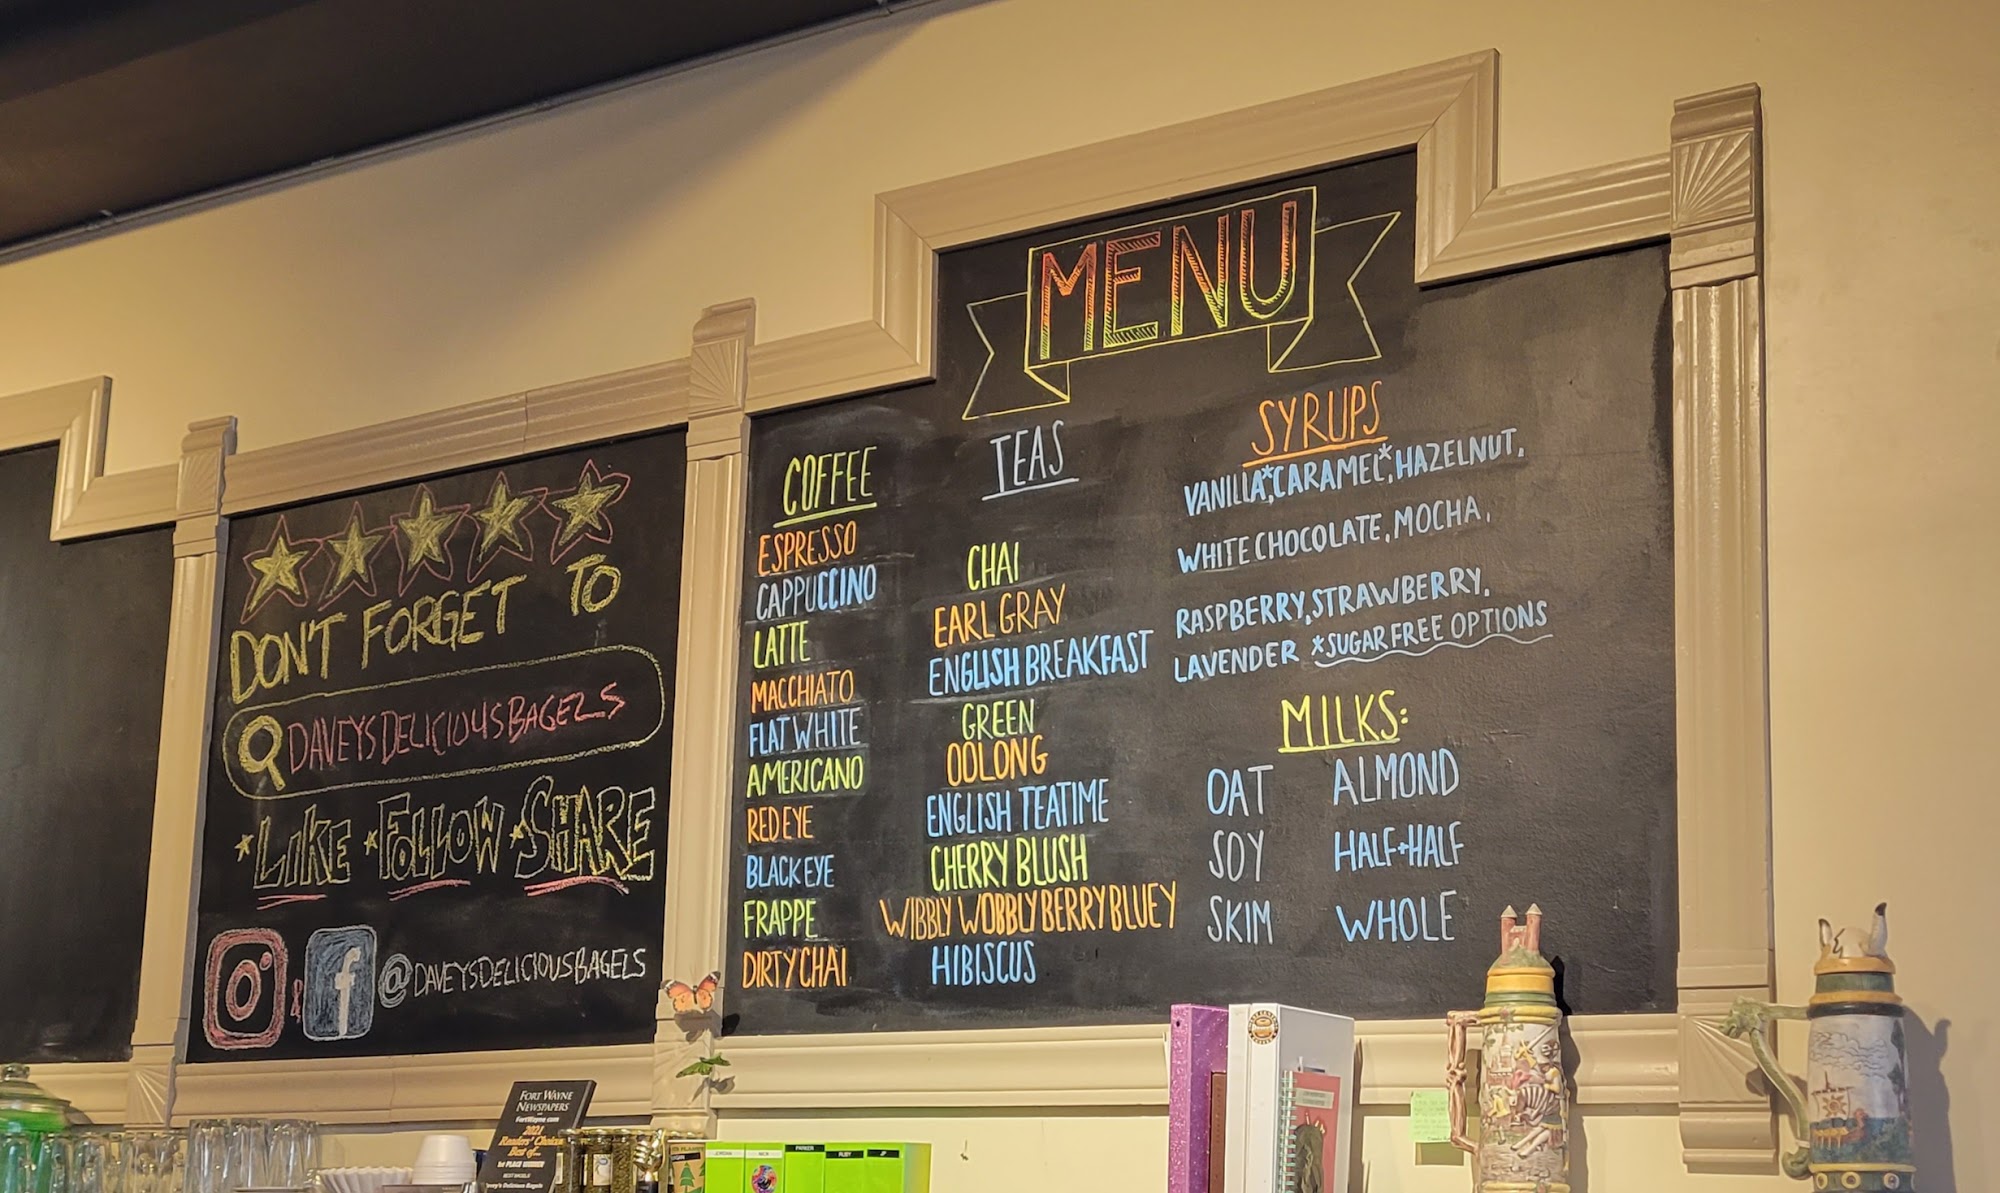 DON'T FORGET TO
DAVEYSDELICIOUSBAGELS
*LIKE *FOLLOW *SHARE
& f @DAVEYSDELICIOUSBAGELS
MENU
COFFEE
ESPRESSO
CAPPUCCINO
LATTE
MACCHIATO
FLAT WHITE
AMERICANO
RED EYE
BLACK EYE
FRAPPE
DIRTY CHAI
TEAS
CHAI
EARL GRAY
ENGLISH BREAKFAST
GREEN
OOLONG
ENGLISH TEATIME
CHERRY BLUSH
WIBBLY WOBBLY BERRY BLUEY
HIBISCUS
SYRUPS
VANILLA*, CARAMEL*, HAZELNUT,
WHITE CHOCOLATE, MOCHA,
RASPBERRY, STRAWBERRY,
LAVENDER *SUGAR FREE OPTIONS
MILKS:
OAT ALMOND
SOY HALF+HALF
SKIM WHOLE
FORT WAYNE
NEWSPAPERS
FortWayne.com
2021
Readers' Choice
Best of...
1ST PLACE WINNER
BEST BAGELS
Davey's Delicious Bagels
JORDAN
NICK
PARKER
RUBY
JP